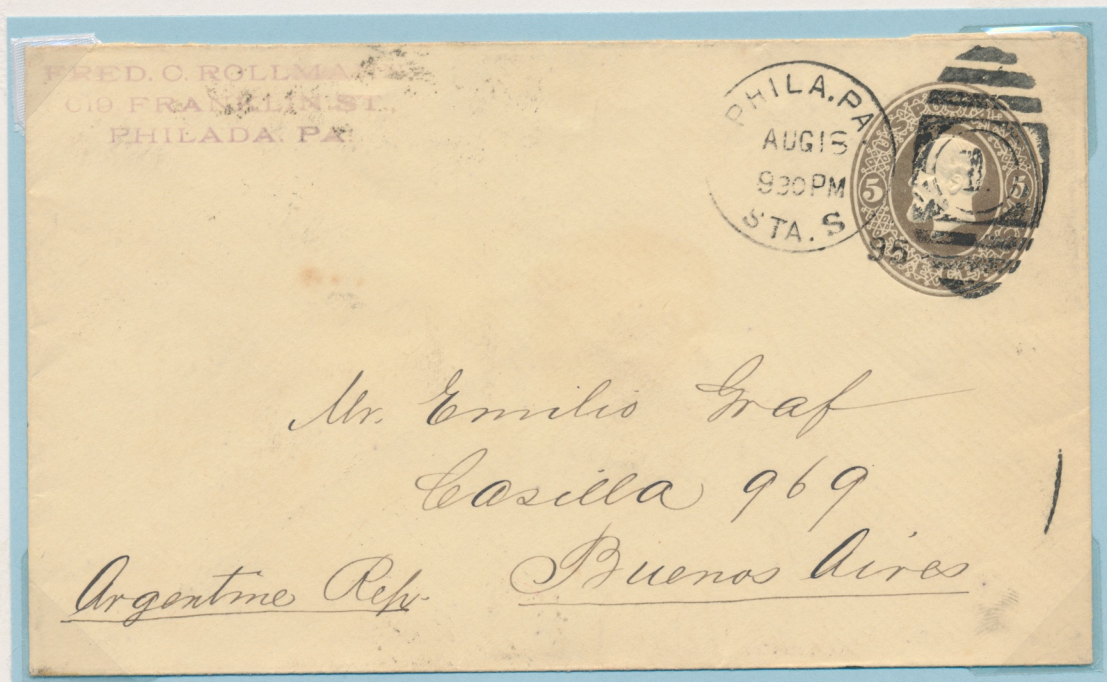 FRED. C. ROLLMA
619 FRANKLIN ST.,
PHILADA. PA.
PHILA. PA.
AUG 15
930 PM
STA. S
95
1
5 5
Mr. Emilio Graf
Casilla 969
Buenos Aires
Argentine Rep.